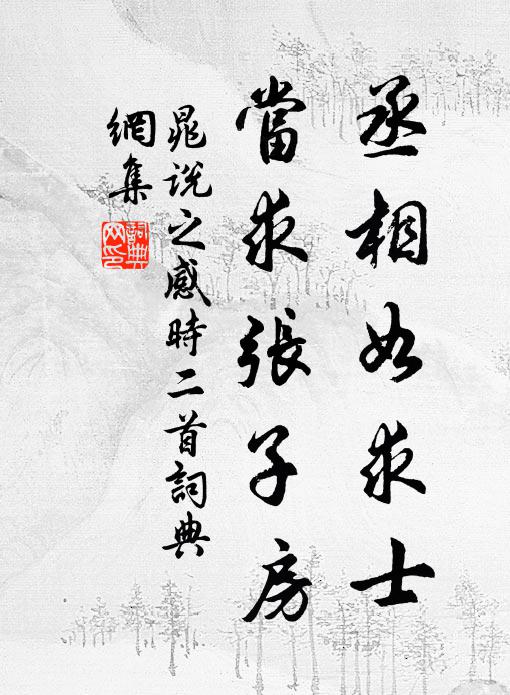 丞相如求士
當求張子房
晁說之感時二首詞典
網集
詞典網印